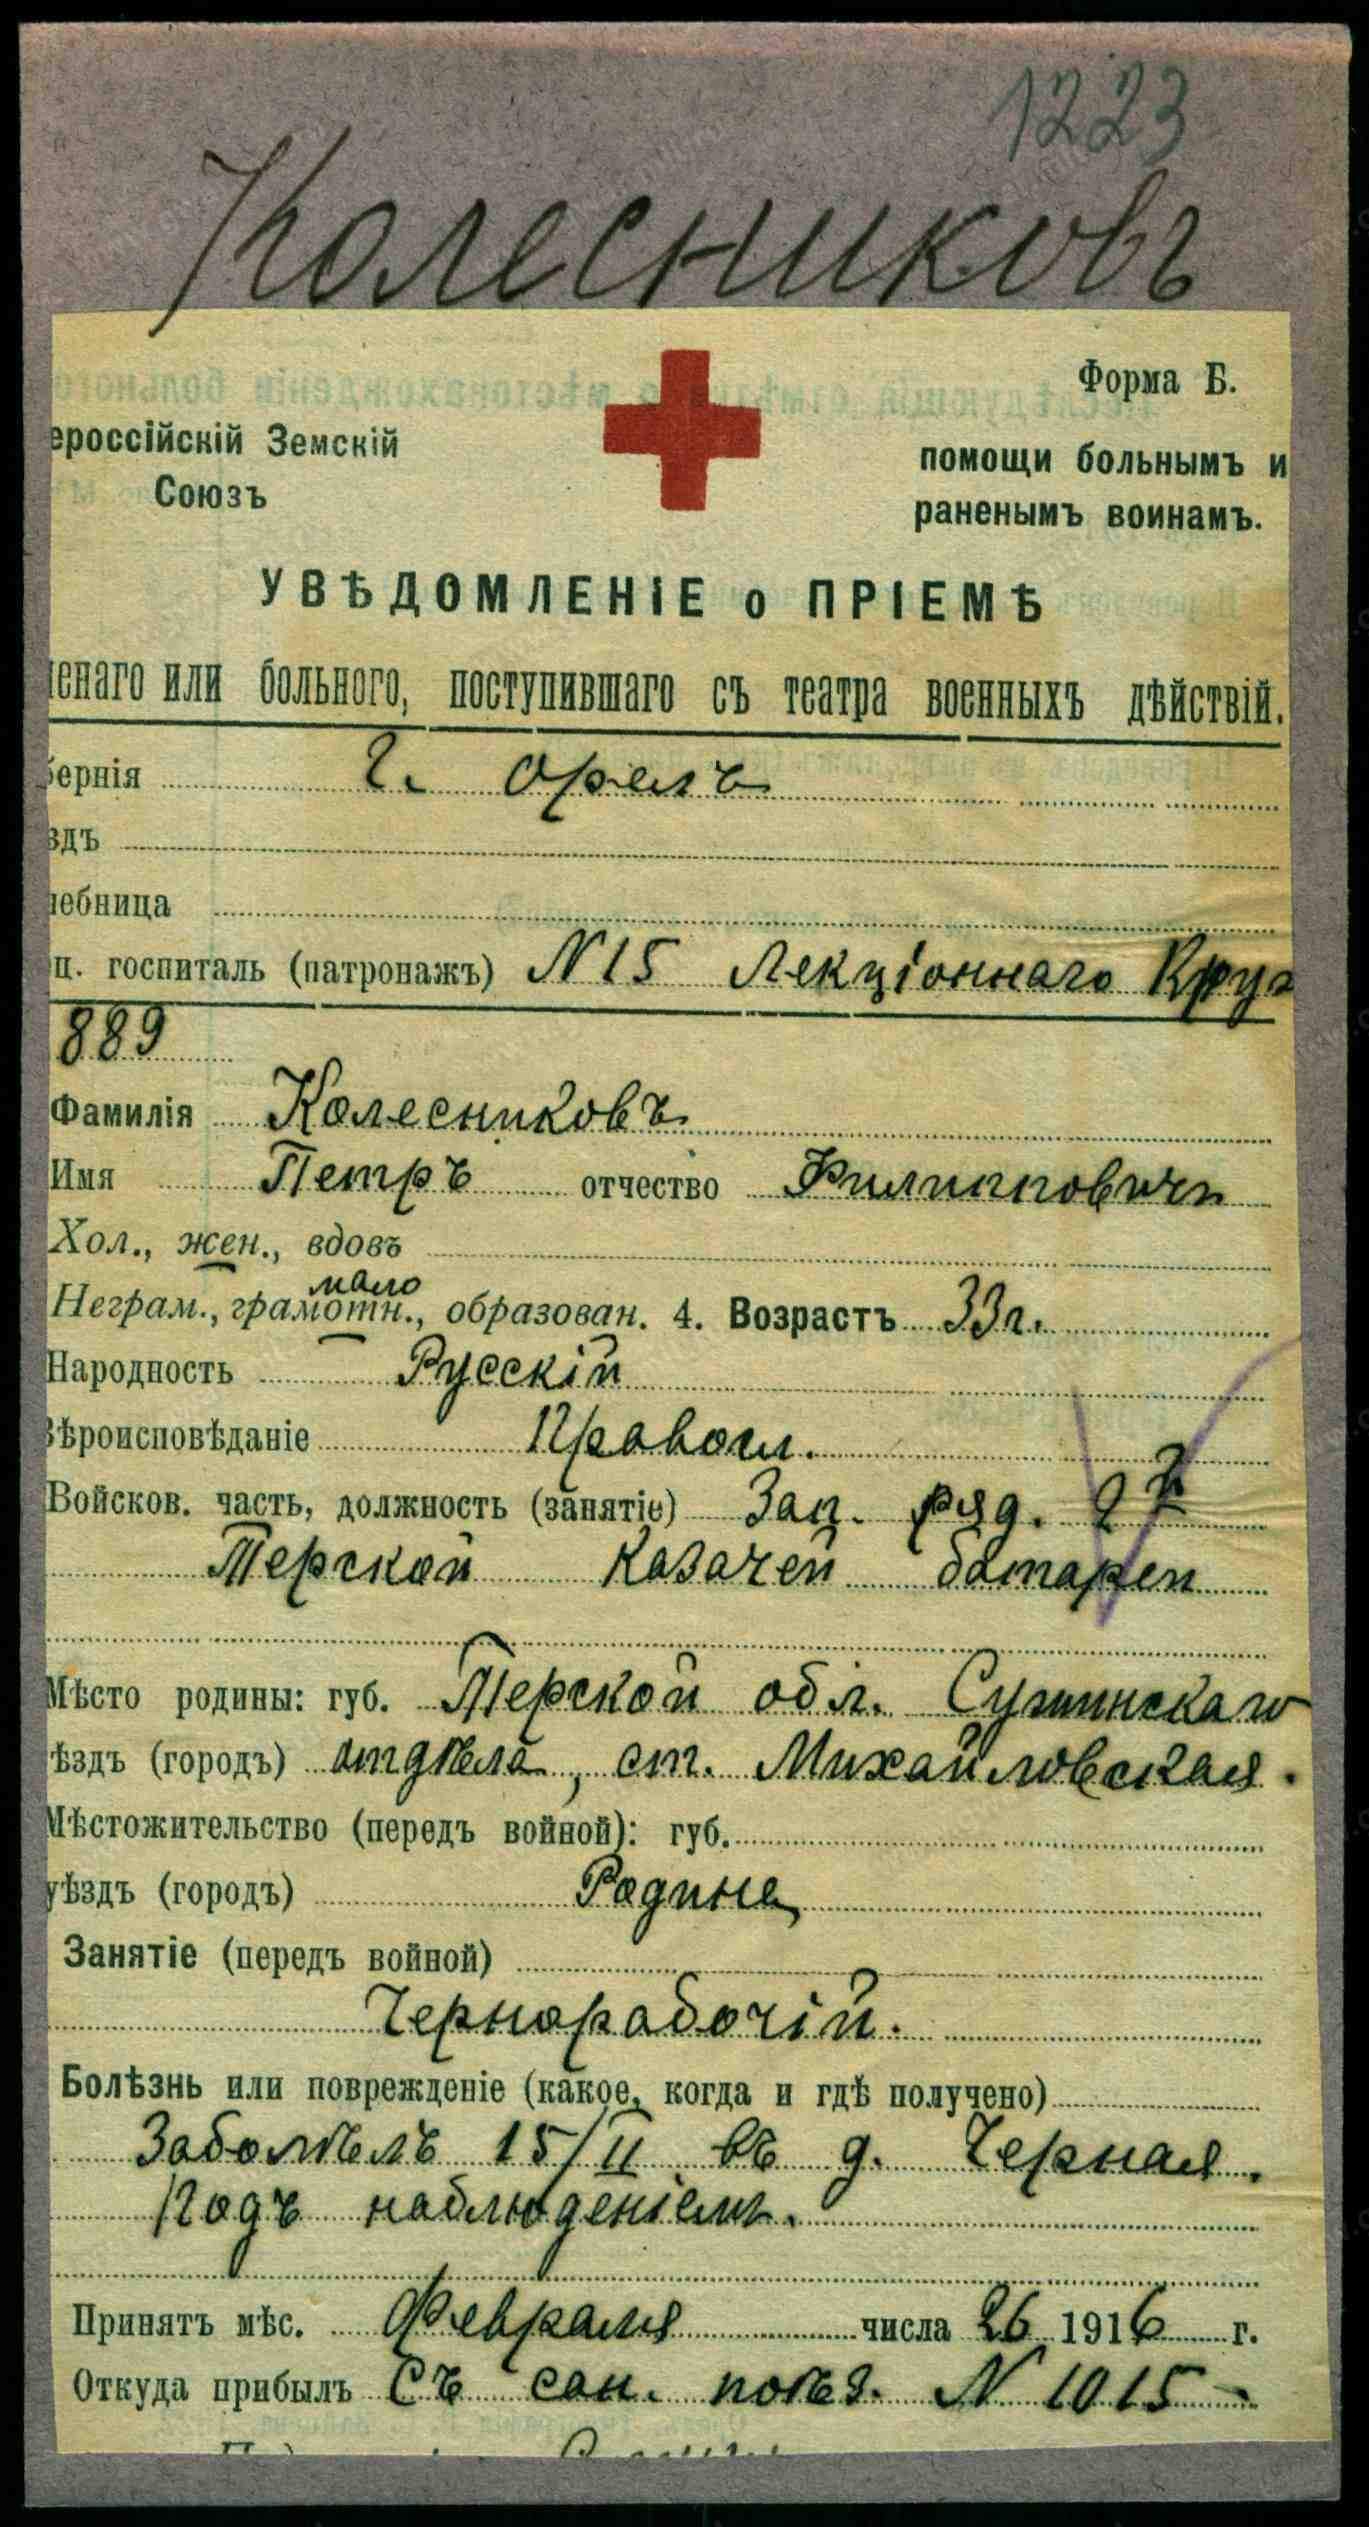 1223
Колесниковъ
Форма Б.
ероссійскій Земскій
Союзъ
помощи больнымъ и
раненымъ воинамъ.
УВѢДОМЛЕНІЕ о ПРІЕМѢ
енаго или больного, поступившаго съ театра военныхъ дѣйствій.
бернія г. Орелъ
здъ
чебница
ц. госпиталь (патронажъ) N 15 Лекціоннаго Круж
889
Фамилія Колесниковъ
Имя Петръ отчество Филипповичъ
Хол., жен., вдовъ
мало
Неграм., грамотн., образован. 4. Возрастъ 33 г.
Народность Русскій
Вѣроисповѣданіе Правосл.
Войсков. часть, должность (занятіе) Зап. ряд. 2й
Терской казачей батареи
Мѣсто родины: губ. Терской обл. Сунженскаго
ѣздъ (городъ) отдѣла, ст. Михайловская.
Мѣстожительство (передъ войной): губ.
уѣздъ (городъ) Родина
Занятіе (передъ войной)
Чернорабочій.
Болѣзнь или поврежденіе (какое, когда и гдѣ получено)
Заболѣлъ 15/II въ д. Черная.
Подъ наблюденіемъ.
Принятъ мѣс. Февраля числа 26 1916 г.
Откуда прибылъ Съ сан. поѣз. N 1015